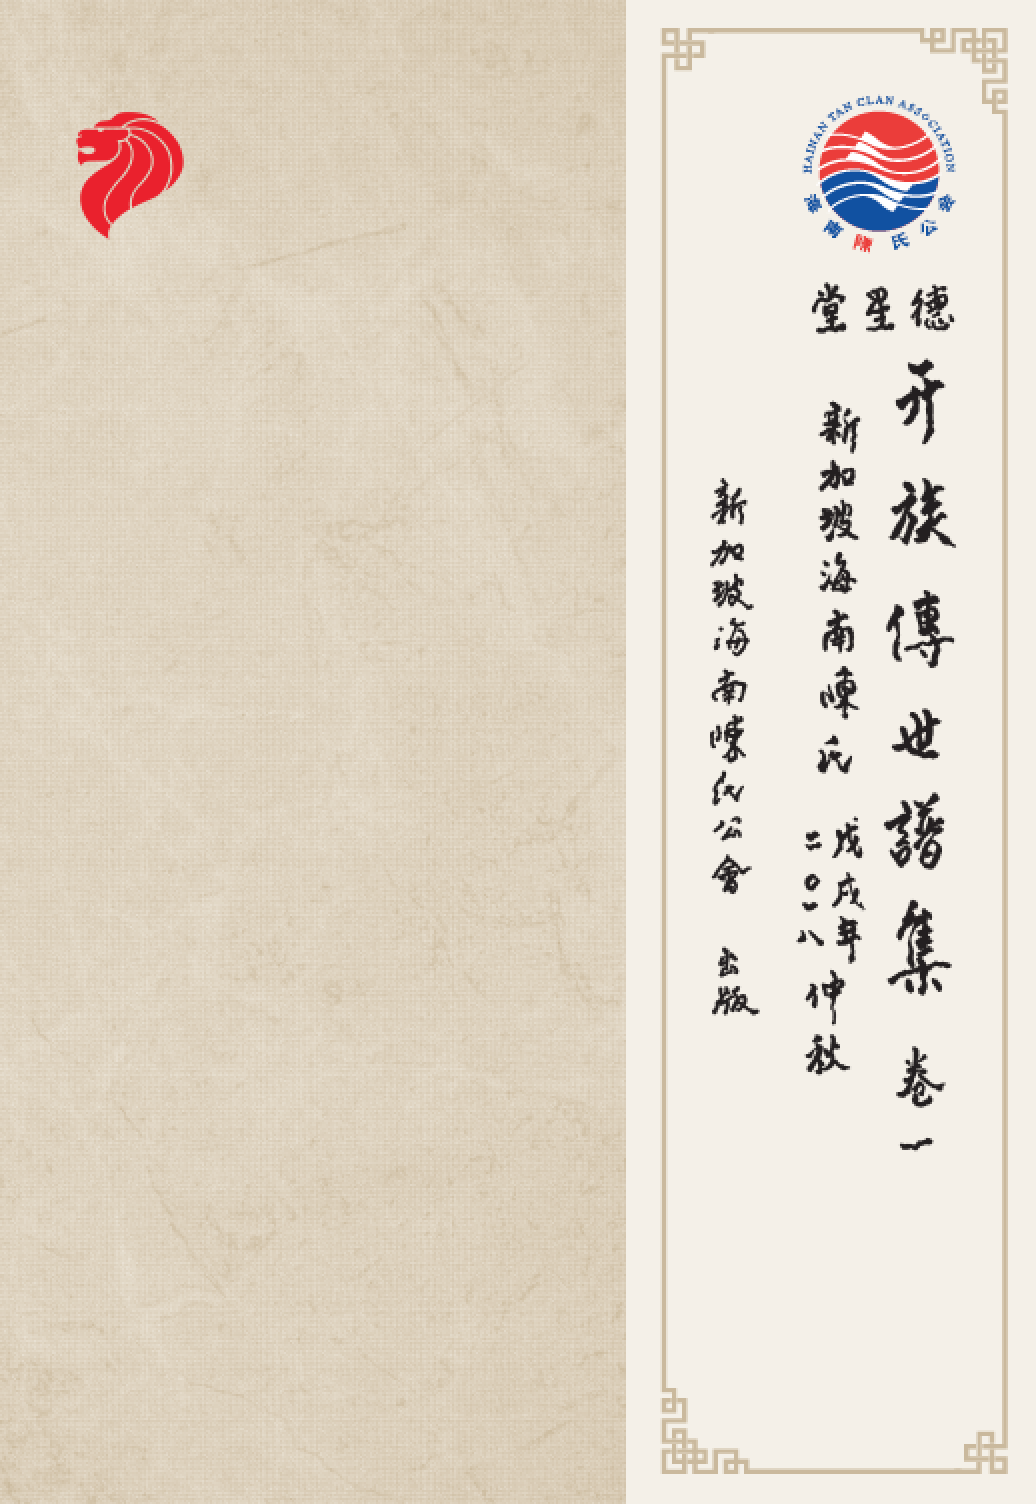 HAINAN TAN CLAN ASSOCIATION
瓊南陳氏公會
德星堂
开族傳世譜集 卷一
新加坡海南陳氏
戊戌年
二〇一八
仲秋
新加坡海南陳氏公會 出版